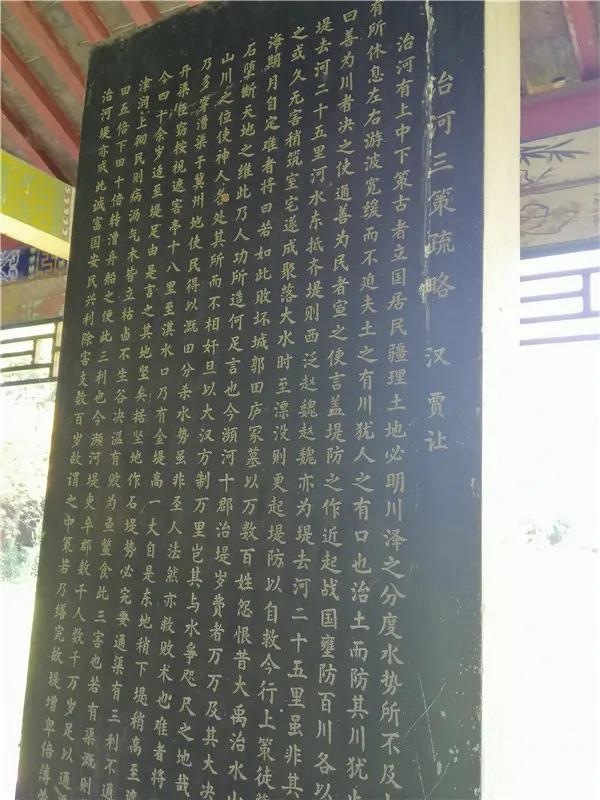 治河三策疏略　汉　贾让
治河有上中下策古者立国居民疆理土地必明川泽之分度水势所不及
有所休息左右游波宽缓而不迫夫土之有川犹人之有口也治土而防其川犹止
曰善为川者决之使通善为民者宣之使言盖堤防之作近起战国壅防百川各以
堤去河二十五里河水东抵齐堤则西泛赵魏赵魏亦为堤去河二十五里虽非其
之或久无害稍筑室宅遂成聚落大水时至漂没则更起堤防以自救今行上策徙
海期月自定难者将曰若如此败坏城郭田庐冢墓以万数百姓怨恨昔大禹治水山
石堕断天地之维此乃人功所造何足言也今濒河十郡治堤岁费者万万及其大决
山川之位使神人各处其所而不相奸且以大汉方制万里岂其与水争咫尺之地哉
乃多穿漕渠于冀州地使民得以溉田分杀水势虽非圣人法然亦救败术也难者将
开渠臣窃按视遮害亭十八里至淇水口乃有金堤高一大自是东地稍下堤稍高至遮
今四十余岁适至堤足由是言之其地坚矣据坚地作石堤势必完要通渠有三利不通
津润上彻民则病沥气木皆立枯卤不生谷决溢有败为鱼鳖食此三害也若有渠溉则
田五倍下田十倍转漕舟船之便此三利也今濒河堤吏卒郡数千人数千万岁足以通
治河堤亦成此诚富国安民兴利除害支数百岁故谓之中策若乃缮完故堤增卑倍薄劳